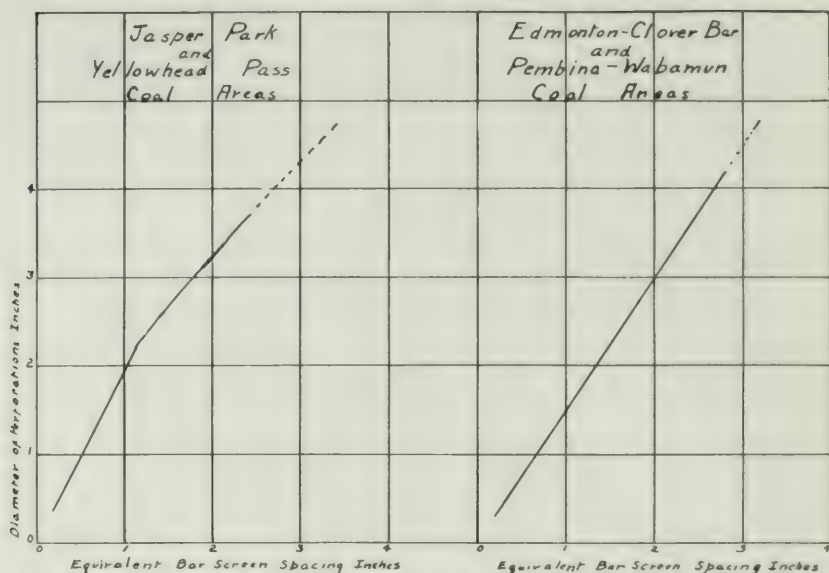 Jasper Park
and
Yellowhead Pass
Coal Areas
Edmonton-Clover Bar
and
Pembina-Wabamun
Coal Areas
Diameter of Perforations Inches
4
3
2
1
0
0 1 2 3 4
0 1 2 3 4
Equivalent Bar Screen Spacing Inches
Equivalent Bar Screen Spacing Inches